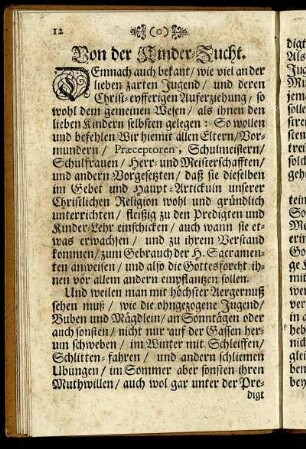 12
(o)
Von der Kinder-Zucht.
DEmnach auch bekant / wie viel an der
lieben zarten Jugend / und deren
Christ-eyfferigen Auferziehung / so
wohl dem gemeinen Wesen / als ihnen den
lieben Kindern selbsten gelegen: So wollen
und befehlen Wir hiemit allen Eltern / Vor-
mundern / Præceptoren, Schulmeistern /
Schulfrauen / Herr- und Meisterschafften /
und andern Vorgesetzten / daß sie dieselben
im Gebet und Haupt-Artickuln unserer
Christlichen Religion wohl und gründlich
unterrichten / fleißig zu den Predigten und
Kinder-Lehr einschicken / auch wann sie et-
was erwachsen / und zu ihrem Verstand
kommen / zum Gebrauch der H. Sacramen-
ten anweisen / und also die Gottesforcht ih-
nen vor allem andern einpflantzen sollen.
Und weilen man mit höchster Aergernuß
sehen muß / wie die ohngezogene Jugend /
Buben und Mägdlein / an Sonntägen oder
auch sonsten / nicht nur auf der Gassen her-
um schweben / im Winter mit Schleiffen /
Schlitten-fahren / und andern schliemen
Ubungen / im Sommer aber sonsten ihren
Muthwillen / auch wol gar unter der Pre-
digt